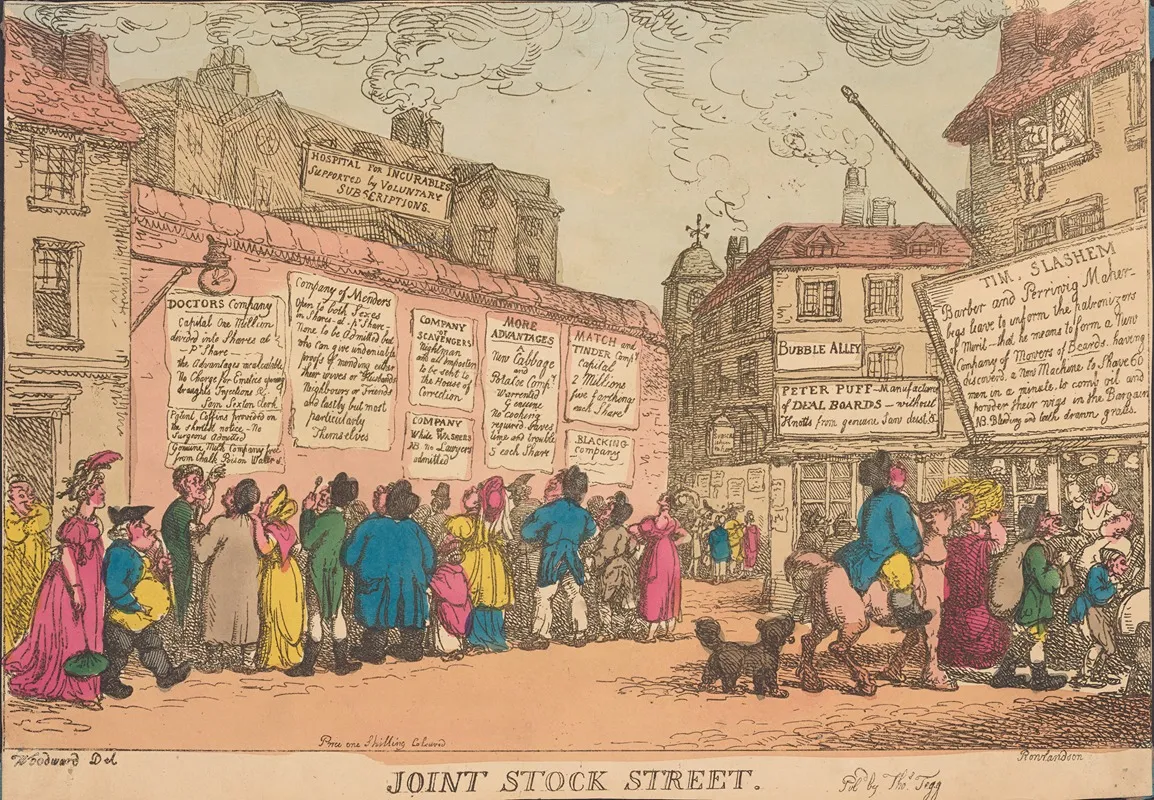 HOSPITAL FOR INCURABLES
SUPPORTED by VOLUNTARY
SUBSCRIPTIONS.
DOCTORS Company
Capital One Million
devided into Shares at
- pr Share -
the Advantages
No Charge for
draughts Injections &c
Sam Sexton Clerk
Patent Coffins provided on
the shortest notice - No
Surgeons Admitted
Genuine Milk Company free
from Chalk Poison Water &c
Company of Menders
Open to both Sexes
in Shares at pr Share -
None to be Admitted but
who can give undeniable
proofs of mending either
their wives or Husbands
Neighbours or Friends
and lastly but most
particularly
Themselves
COMPANY
OF
SCAVENGERS
Nightman
and all Imposters
to be sent to
the House of
Correction
COMPANY
of
White Washers
NB no Lawyers
admitted
MORE
ADVANTAGES
New Cabbage
and
Potatoe Compy
Warrented
Genuine
No Cooking
required Saves
time and trouble
5 each Share
MATCH and
TINDER Compy
Capital
2 Millions
five farthings
each Share
BLACKING
company
BUBBLE ALLEY
PETER PUFF - Manufacturer
of DEAL BOARDS - without
Knotts from genuine Saw dust &c
TIM. SLASHEM
Barber and Perriwig Maker -
begs leave to inform the patronizers
of Merit - that he means to form a New
Company of Mowers of Beards. having
discoverd a New Machine to Shave 60
men in a minute. to comb oil and
powder their wigs in the Bargain
NB. Bleeding and teeth drawn gratis.
Price one Shilling Coloured
Woodward Del
Rowlandson
JOINT STOCK STREET.
Pubd by Thos Tegg